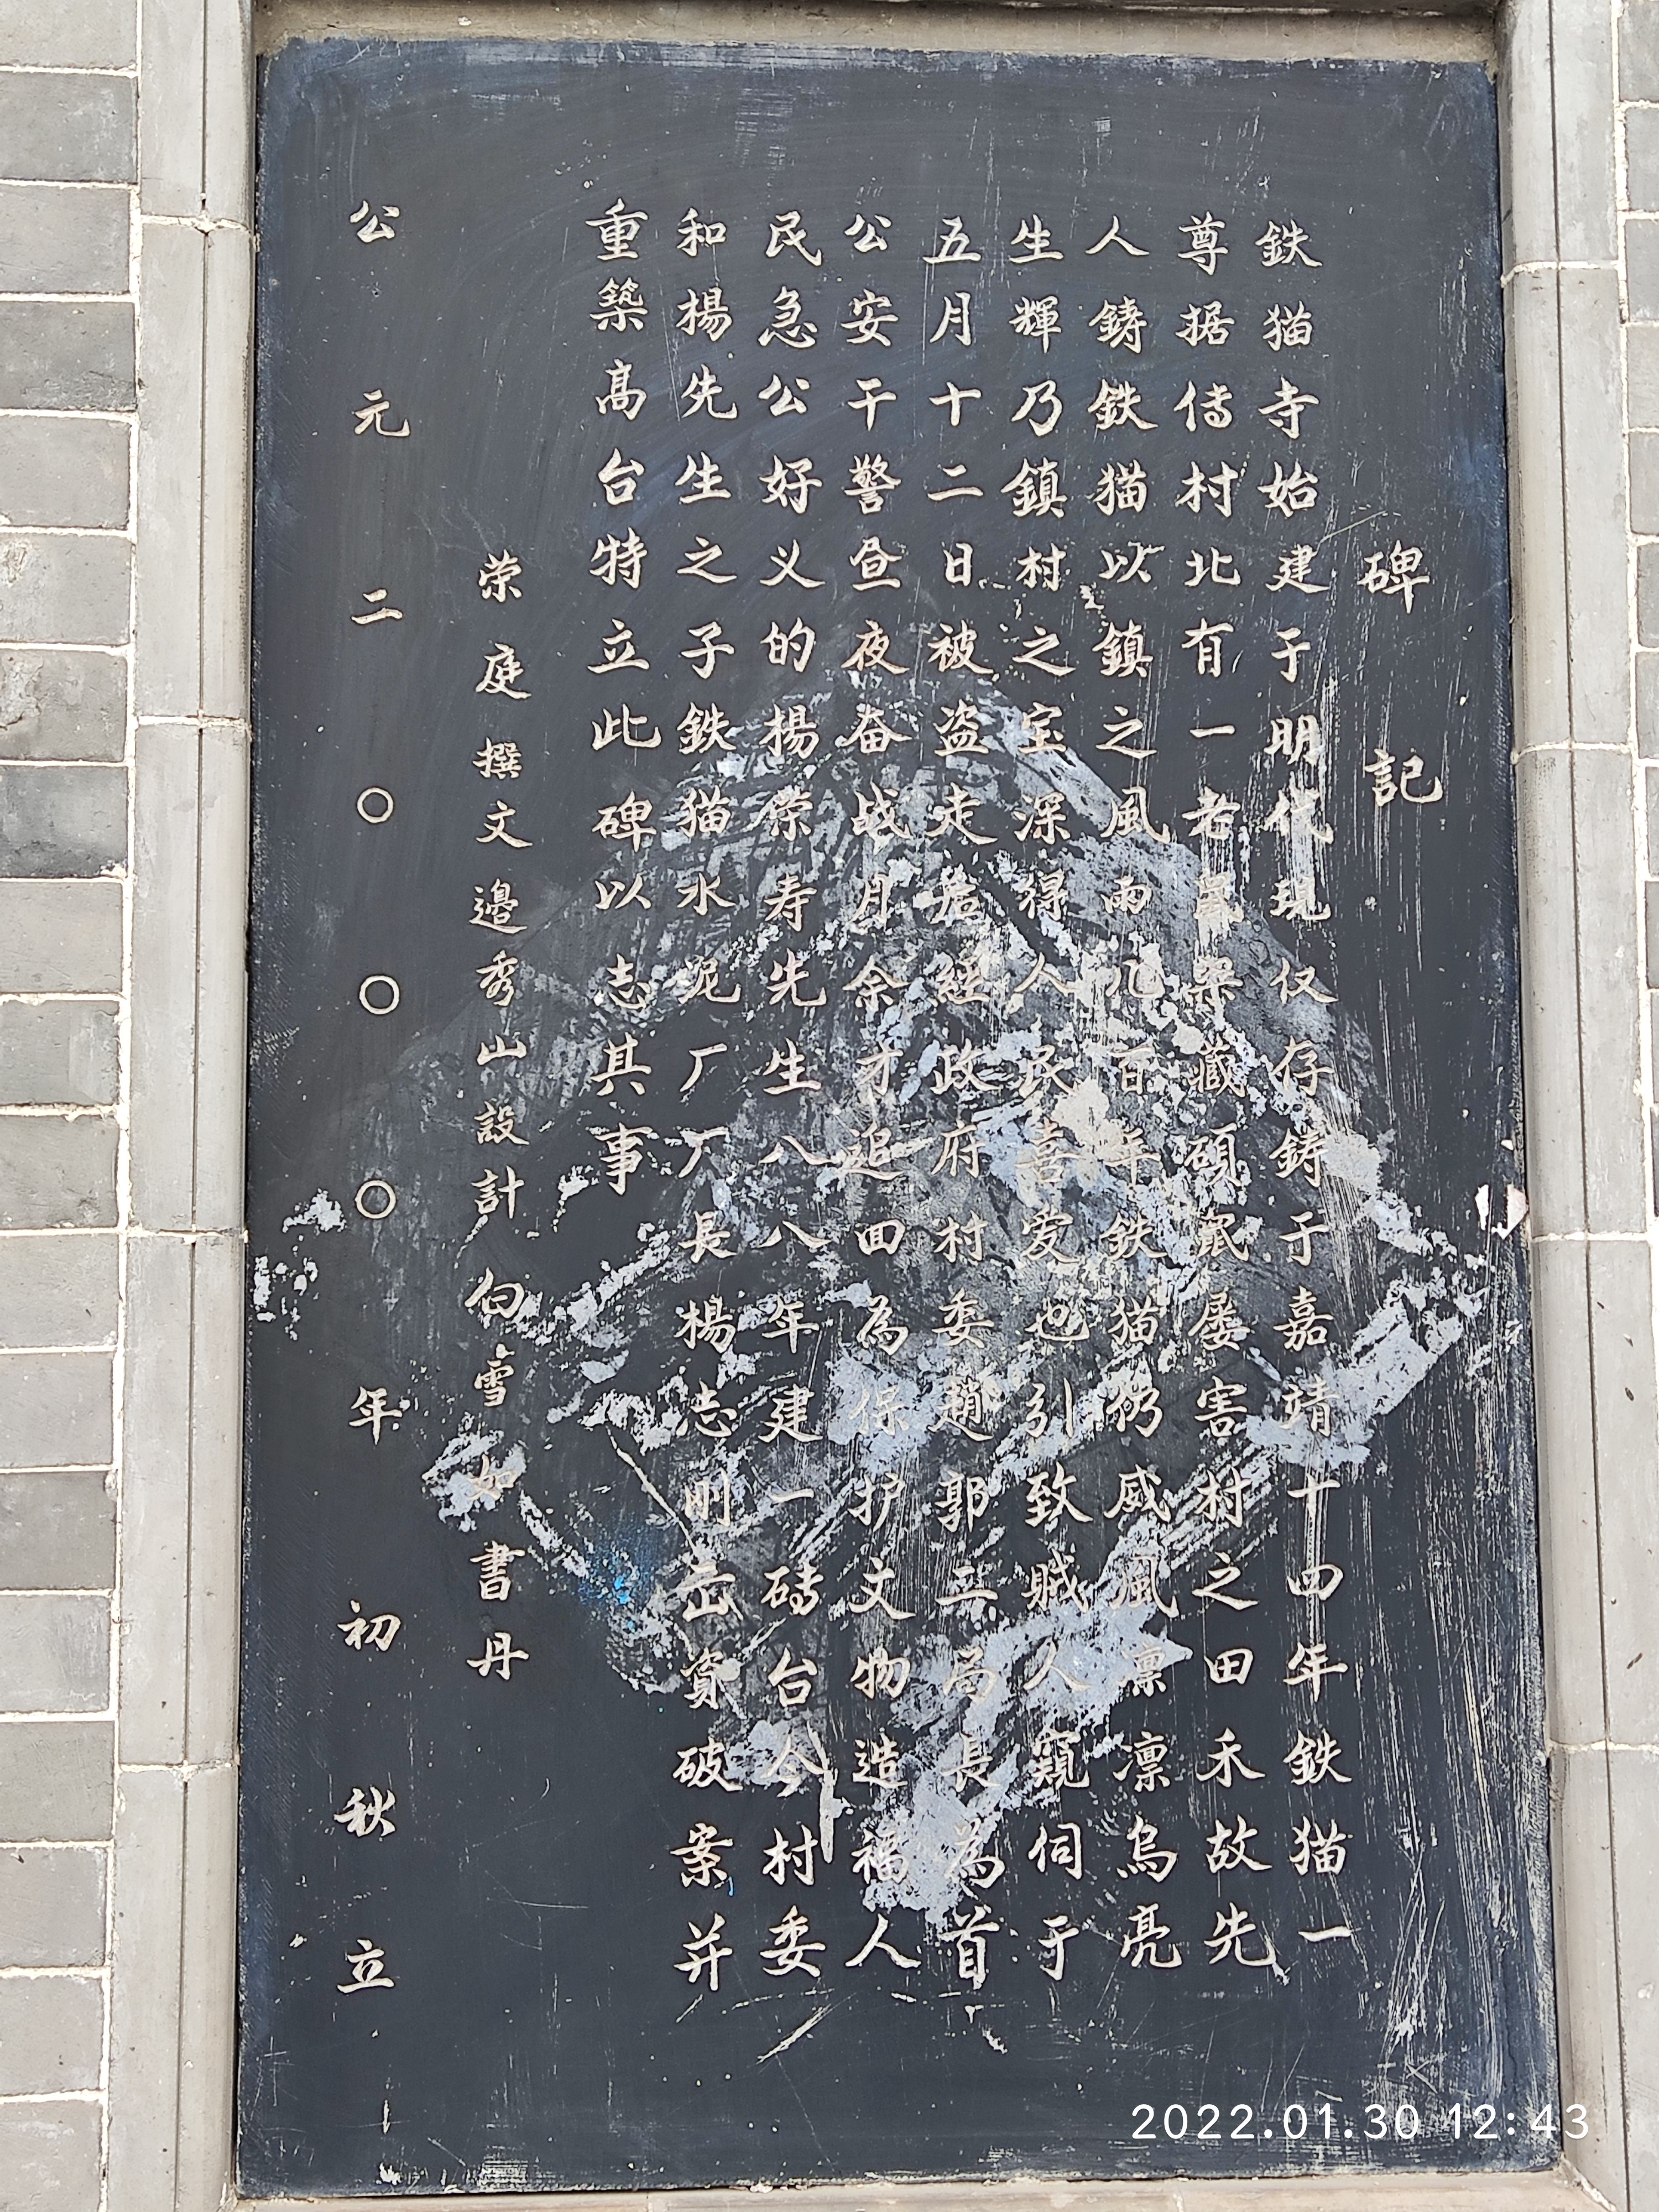 碑記
鉄猫寺始建于明代現仅存鋳于嘉靖十四年鉄猫一
尊据传村北有一老鼠梁藏碩鼠屡害村之田禾故先
人鋳鉄猫以鎮之風雨几百年鉄猫仍威風凛凛烏亮
生輝乃鎮村之宝深得人民喜爱也引致贼人窺伺于
五月十二日被盗走后經政府村委趙郭二局長為首
公安干警昼夜奋战月余才追回為保护文物造福人
民急公好义的楊荣寿先生八八年建一砖台今村委
和楊先生之子鉄猫水泥厂厂長楊志刚出資破案并
重築高台特立此碑以志其事
荣庭撰文邉秀山設計白雪如書丹
公元二〇〇〇年初秋立
2022.01.30 12:43